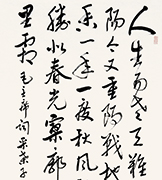 人生易老天難
陽今又重陽戰地
香一年一度秋風
勝似春光寥廓
里霜 毛主席詞采桑子